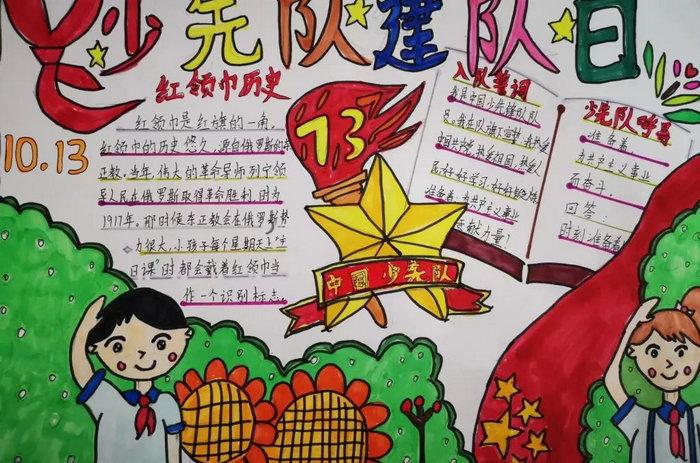 少先队建队日
10.13
红领巾历史
红领巾是红旗的一角,
红领巾的历史悠久,源自俄罗斯的东
正教,当年,伟大的革命导师列宁领
导人民在俄罗斯取得革命胜利,时为
1917年。那时候东正教会在俄罗斯势
力很大,小孩子每个星期天上“主
日课”时都会戴着红领巾当
作一个识别标志。
73
中国少先队
入队誓词
我是中国少先锋队队
员。我在队旗下宣誓,我热爱
中国共产党,热爱祖国,热爱人
民,好好学习,好好锻炼,
准备着:为共产主义事业
贡献力量!
少先队呼号
准备着
为共产主义事业
而奋斗
回答:
时刻准备着